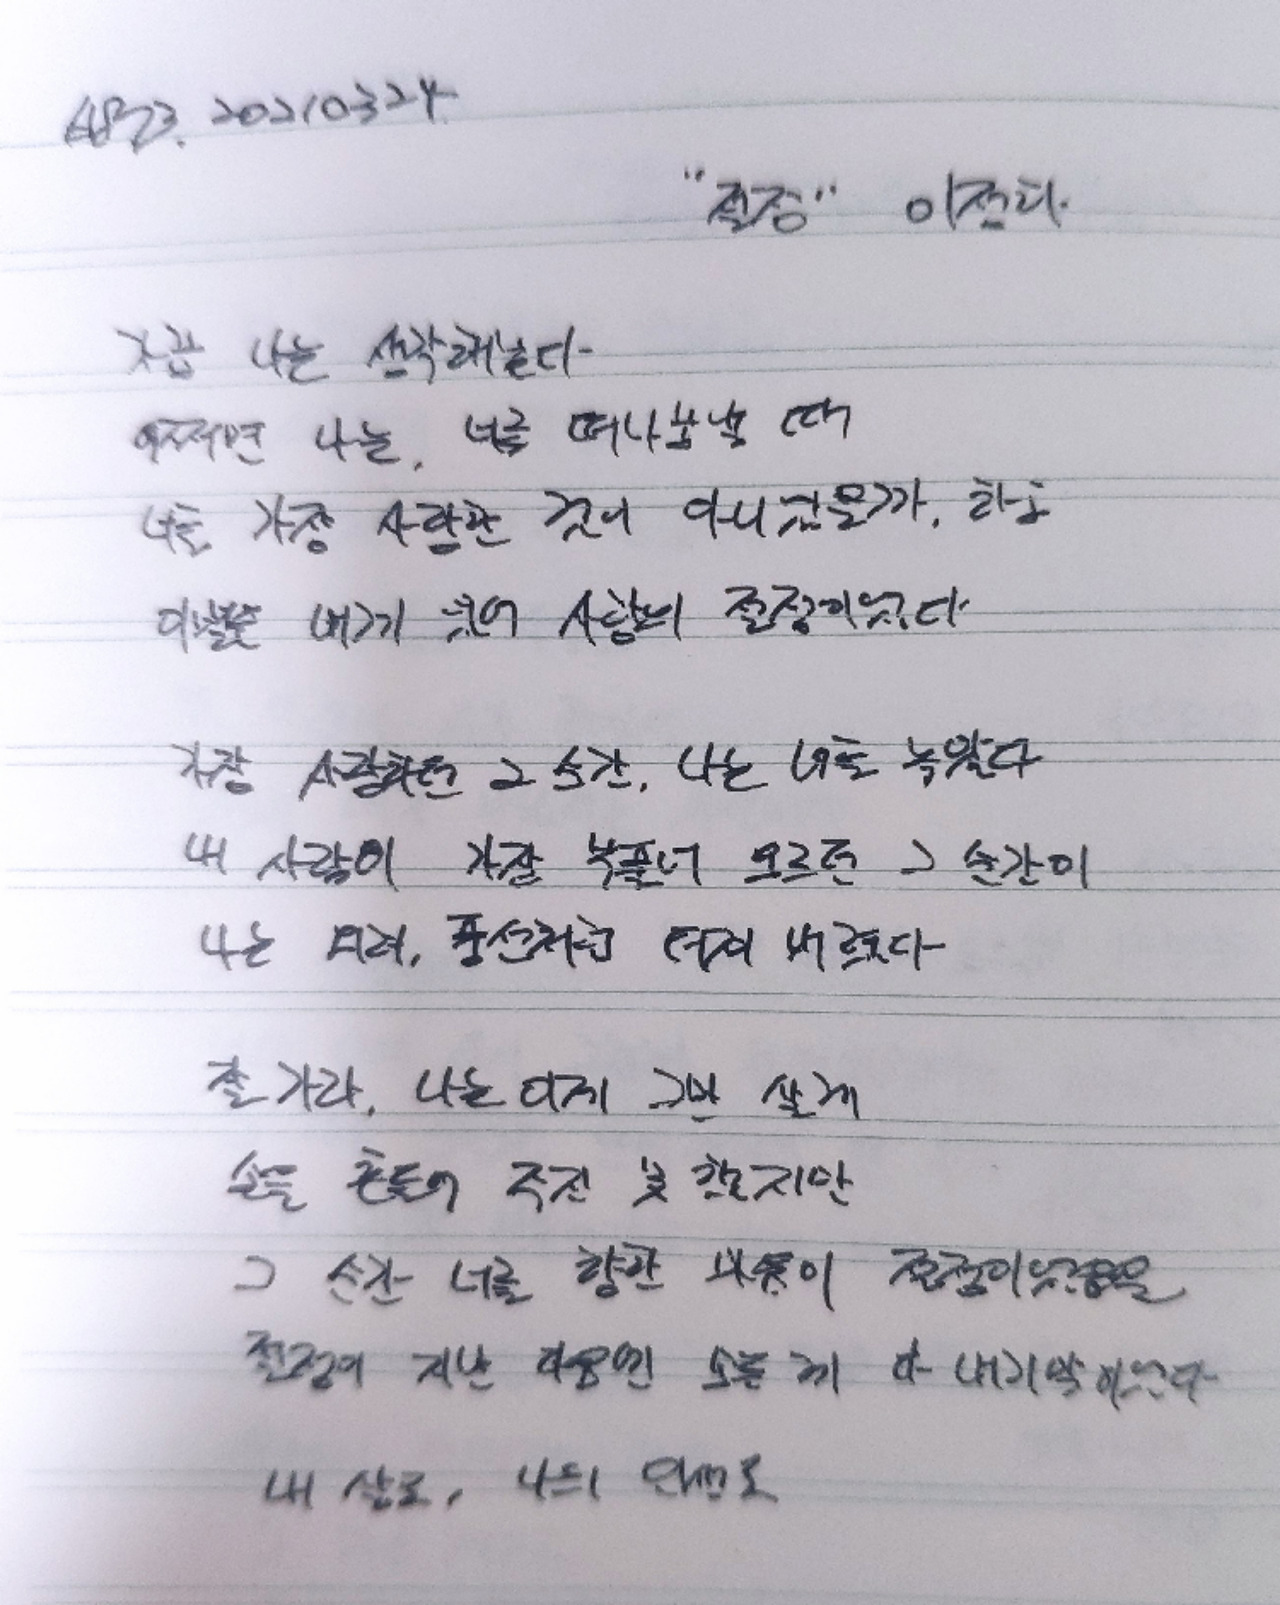 20210324.
"절정" 이정하.
가끔 나는 생각해본다
어쩌면 나는, 너를 떠나보낼 때
너를 가장 사랑한 것이 아니었을까, 하고
이별은 내게 있어 사랑의 절정이었다
가장 사랑하던 그 순간, 나는 너를 놓았다
내 사랑이 가장 부풀어 오르던 그 순간이
나는 두려워, 풍선처럼 터져 버렸다
잘 가라, 나는 이제 그만 살게
손을 흔들어 주진 못 했지만
그 순간 너를 향한 마음이 절정이었음을
절정이 지난 다음엔 모든 게 다 내리막이었다
내 삶도, 나의 인생도